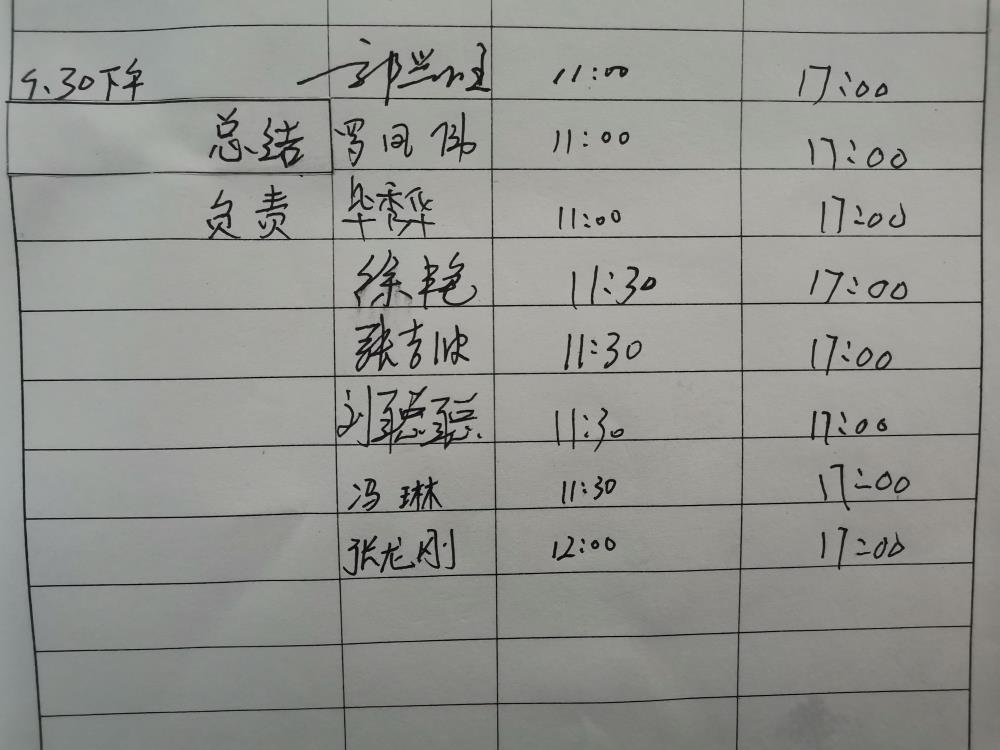 9.30下午 郭兴旺 11:00 17:00
总结 罗同 11:00 17:00
负责 毕秀华 11:00 17:00
徐艳 11:30 17:00
张吉波 11:30 17:00
刘聪聪 11:30 17:00
冯琳 11:30 17:00
张龙刚 12:00 17:00